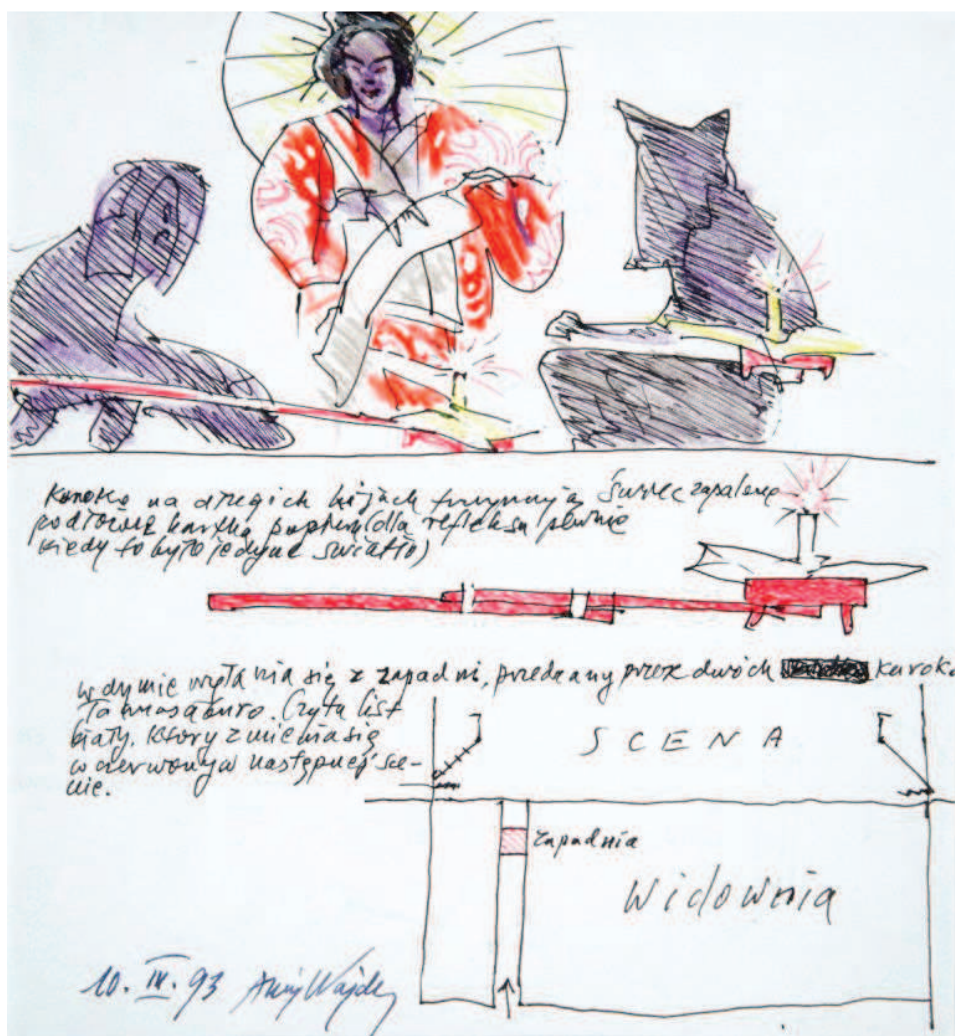 Kuroko na długich kijach trzymają świec zapalone
pod świecą kartka papieru (dla refleksu
kiedy to było jedyne światło)
w dymie wyłania się z zapadni, przedzany przez dwóch kuroko
Tamasaburo. Czyta list
biały, który zmienia się
w czerwony w następnej sce-
nie.
SCENA
zapadnia
Widownia
10. IV. 93 Andrzej Wajda